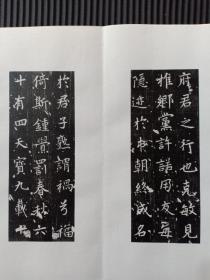 府君之行也克敏見
推鄉黨許諾朋友每
隱迹於市朝終成名
於君子孰謂禍兮福
倚斯鍾舋罰春秋六
十有四天寶九載七